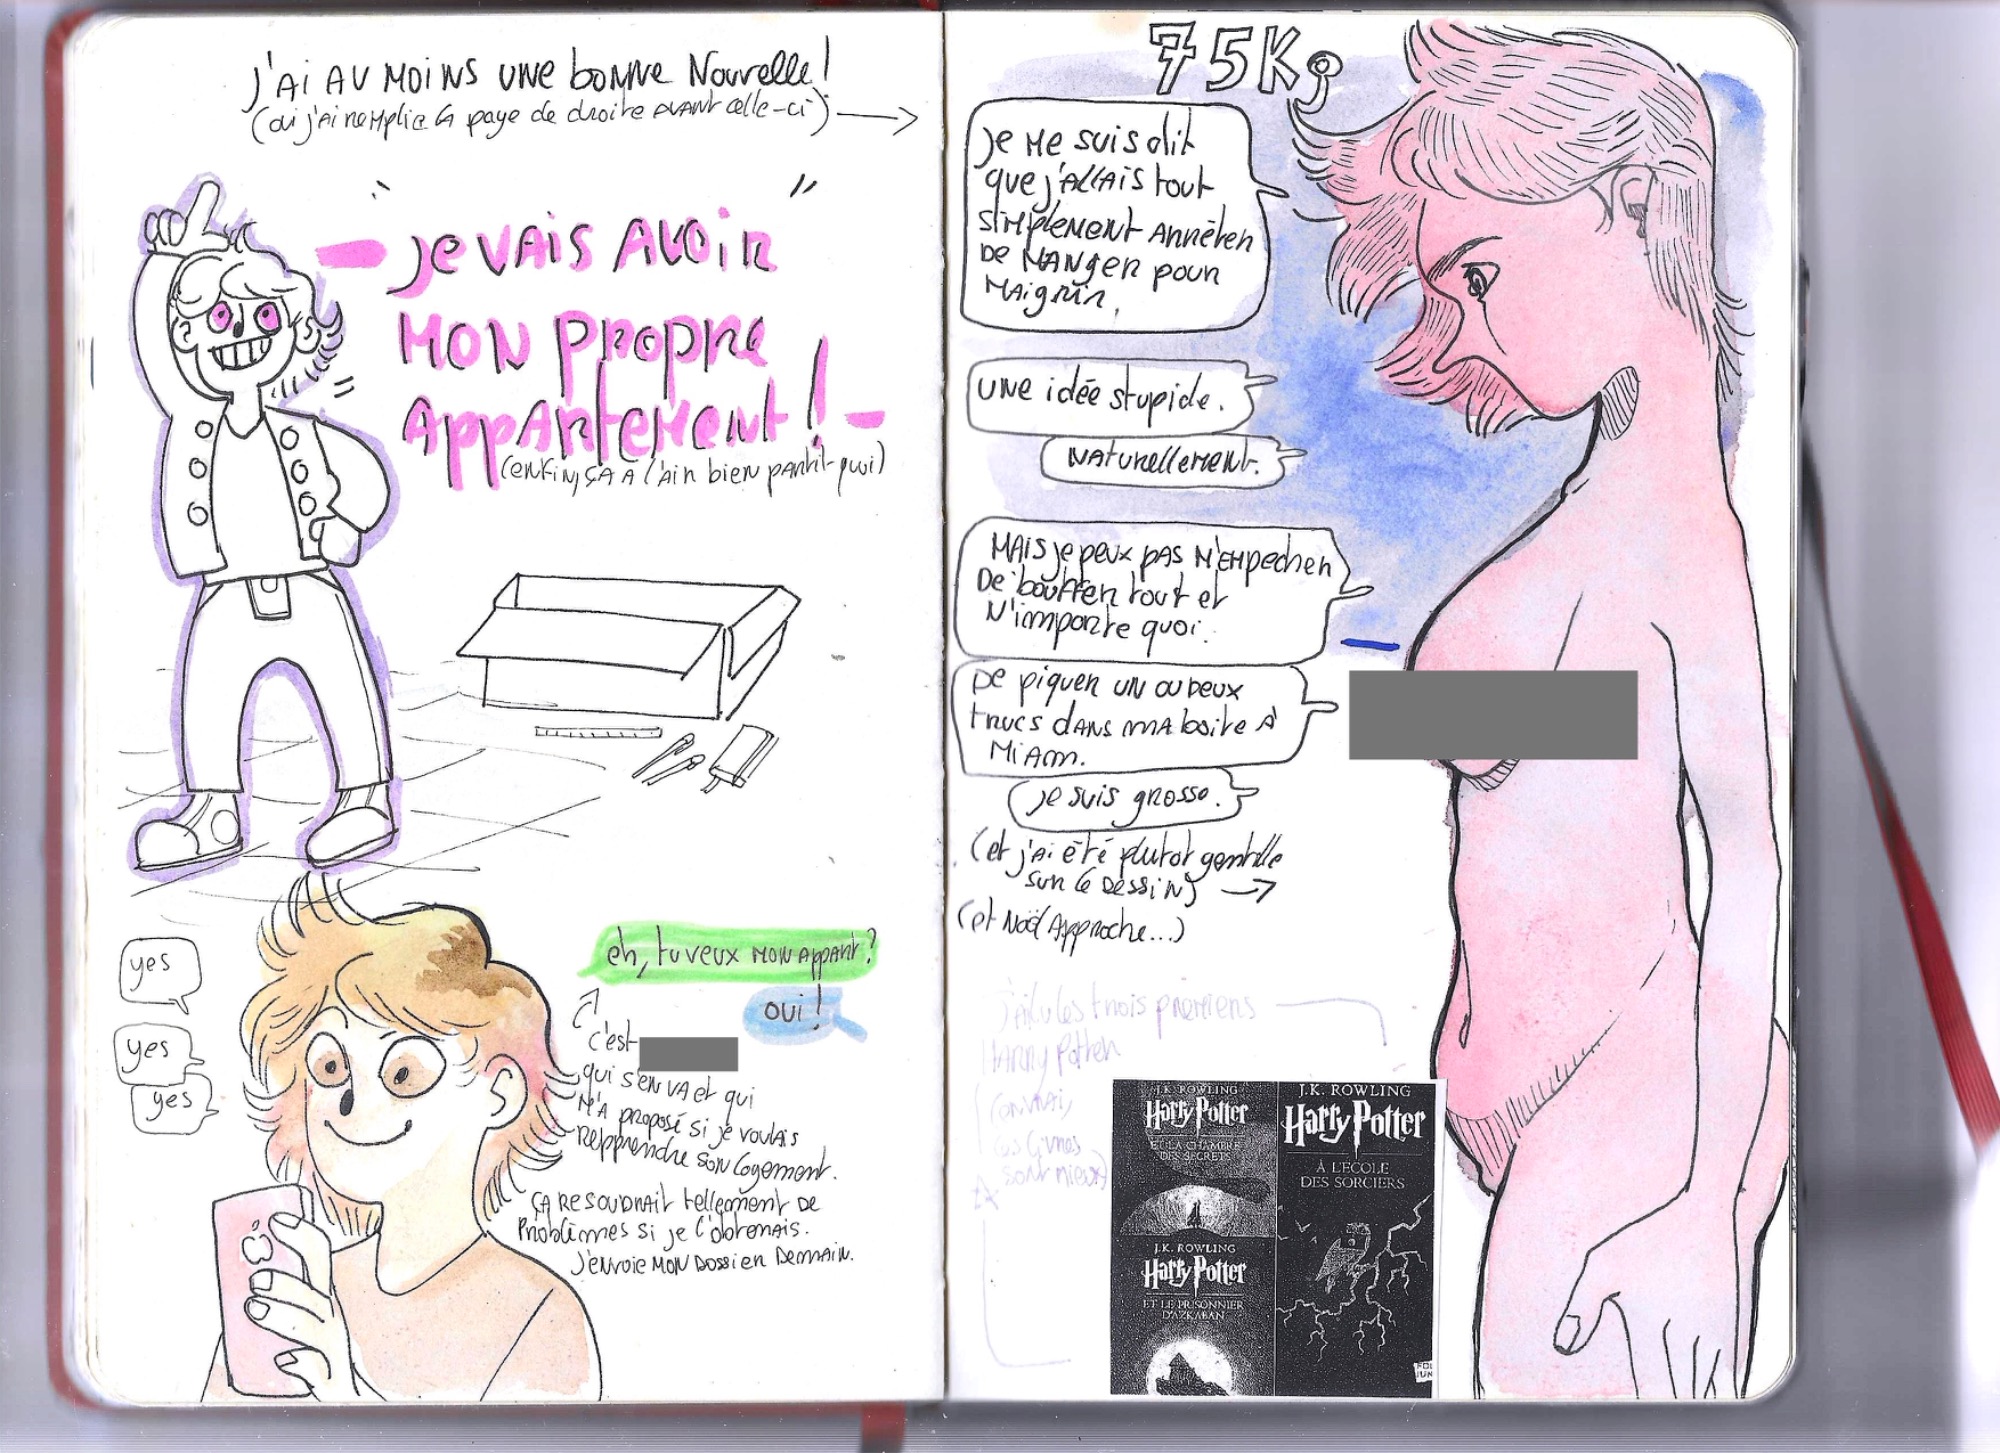 J'AI AU MOINS UNE bonne Nouvelle!
(oui j'ai remplie la page de droite avant celle-ci)
" JE VAIS AVOIR
MON PROPRE
APPARTEMENT! "
(enfin, ça a l'air bien parti quoi)
yes
yes
yes
eh, tu veux MON APPART?
oui!
c'est
qui s'en va et qui
m'a proposé si je voulais
repprendre son logement.
ça resoudrait tellement de
problèmes si je l'obtenais.
J'envoie MON DOSSIER DEMAIN.
75Kg
Je me suis dit
que j'allais tout
simplement arrêter
de manger pour
maigrir.
une idée stupide.
NATURELLEMENT.
MAIS je peux pas m'empecher
De bouffer tout et
N'importe quoi.
De piquer un ou deux
trucs dans ma boite à
Miam.
je suis grosse.
(et j'ai été plutot gentille
sur le dessin)
(et Noël Approche...)
J'ai lu les trois premiers
Harry Potter
(en vrai,
les livres
sont mieux)
J.K. ROWLING
Harry Potter
ET LA CHAMBRE
DES SECRETS
J.K. ROWLING
Harry Potter
À L'ÉCOLE
DES SORCIERS
J.K. ROWLING
Harry Potter
ET LE PRISONNIER
D'AZKABAN